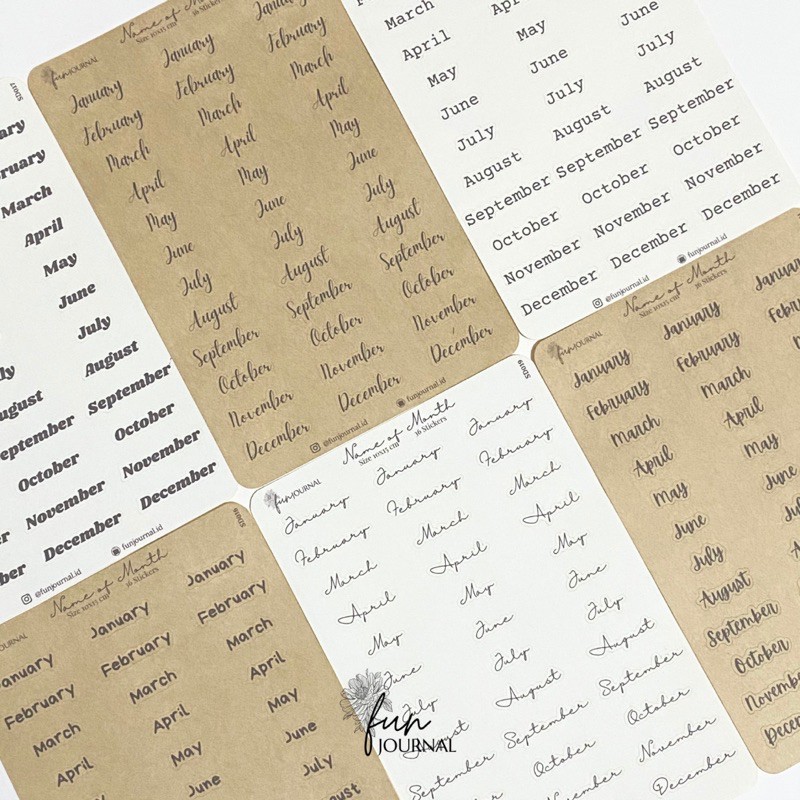 SD017
ary
ruary
March
April
May
June
ly July
ugust August
eptember September
October October
November November
ber December December
@funjournal.id funjournal.id
Name of Month
Size 10x15 cm 36 Stickers
fun JOURNAL
January January January
February February February
March March March
April April April
May May May
June June June
July July July
August August August
September September September
October October October
November November November
December December December
@funjournal.id funjournal.id
March
April May June
May June July
June July August
July August September
August September October
September October November
October November December
November December
December
@funjournal.id funjournal.id
SD016
Name of Month
Size 10x15 cm 36 Stickers
JOURNAL
January January January
February February February
March March March
April April April
May May
June June
July
ugust
SD019
Name of Month
Size 10x15 cm 36 Stickers
fun JOURNAL
January January January
February February February
March March March
April April April
May May May
June June June
July July July
August August August
September September September
October October
November November
December
Name of Month
Size 10x15 cm 36 Stickers
fun JOURNAL
January January January
February February Febru
March March
April April
May May
June June
July Ju
August
September
October
November
Decem
fun
JOURNAL